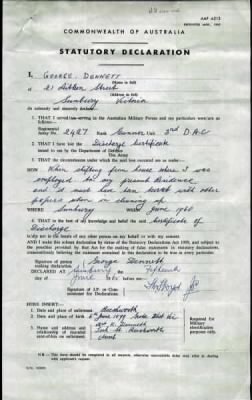 AAF A213
COMMONWEALTH OF AUSTRALIA
STATUTORY DECLARATION
I, GEORGE DENNETT
(Name in full)
of 21 Street
(Address in full)
Sunbury Victoria
do solemnly and sincerely declare:
1. THAT I served in the Australian Military Forces and my particulars were/are as
follows:—
Regimental
Army No. 2427 Rank Gunner Unit 3rd D.A.C
2. THAT I have lost the Discharge Certificate
issued to me by the Department of Defence
The Army
3. THAT the circumstances under which the said loss occurred are as under:—
HOW When shifting from house where I was
employed to my present Residence
and it must have been burnt with other
papers when cleaning up
WHERE Sunbury WHEN June 1960
4. THAT to the best of my knowledge and belief the said Certificate of
Discharge
is/are not in the hands of any other person on my behalf or with my consent.
AND I make this solemn declaration by virtue of the Statutory Declarations Act 1959, and subject to
the penalties provided by that Act for the making of false statements in statutory declarations,
conscientiously believing the statements contained in this declaration to be true in every particular.
Signature of person
making declaration George Dennett
DECLARED AT Sunbury the fifteenth
day of June 19
Before me,
Signature of J.P. or Com-
missioner for Declarations J.P.
HERE INSERT:—
1. Date and place of enlistment
2. Date and place of birth
3. Name and address and
relationship of recorded
next-of-kin on enlistment Dennett
Beechworth
Required for
Military
identification
purposes only.